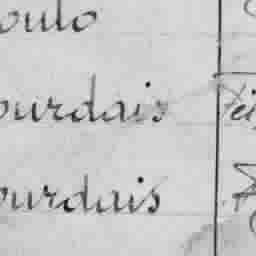 oulo
ourdais
ourdais